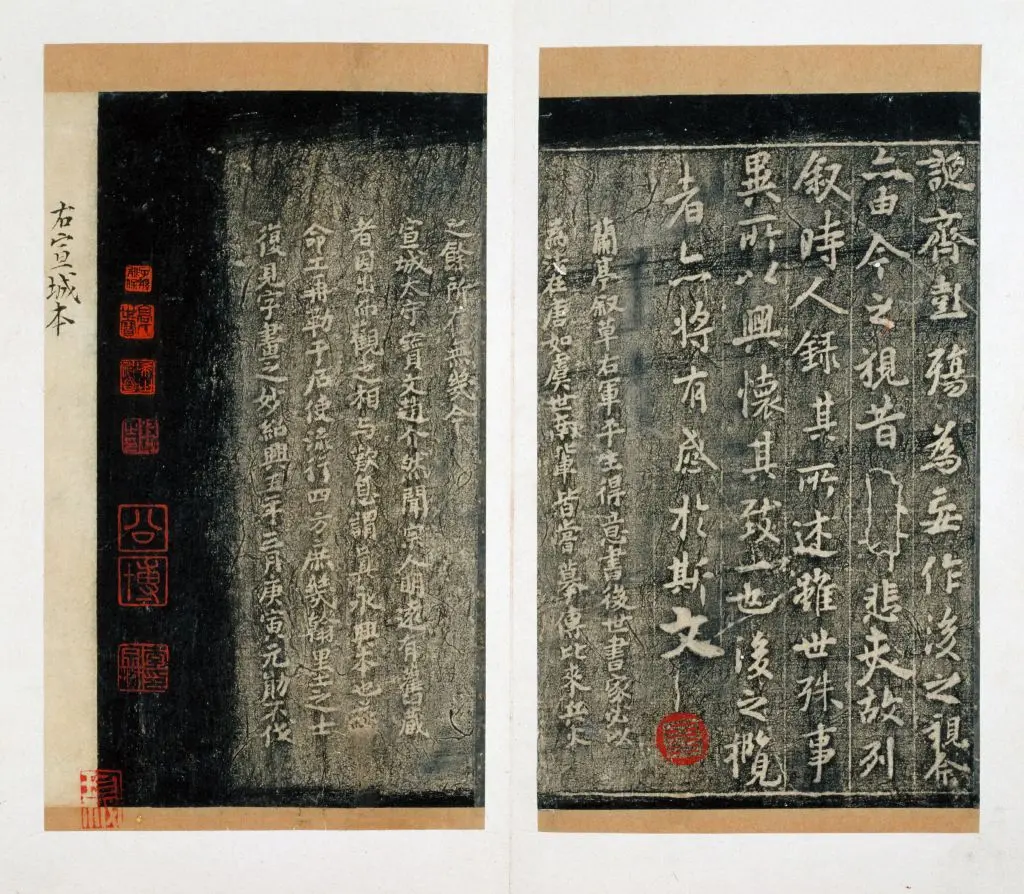 誕齊彭殤為妄作後之視今
亦由今之視昔悲夫故列
叙時人錄其所述雖世殊事
異所以興懷其致一也後之攬
者亦將有感於斯文
蘭亭叙草右軍平生得意書後世書家必以
為法在唐如虞世南軰皆嘗摹傳比來兵火
之餘所存無幾今
宣城太守寶文趙介然聞人有舊藏
者因出而觀之相与歎息謂真永興本也
命工摹勒于石使流行四方庶幾翰墨之士
復見字畫之妙紹興五年三月庚寅元勛不伐
公博
右宣城本